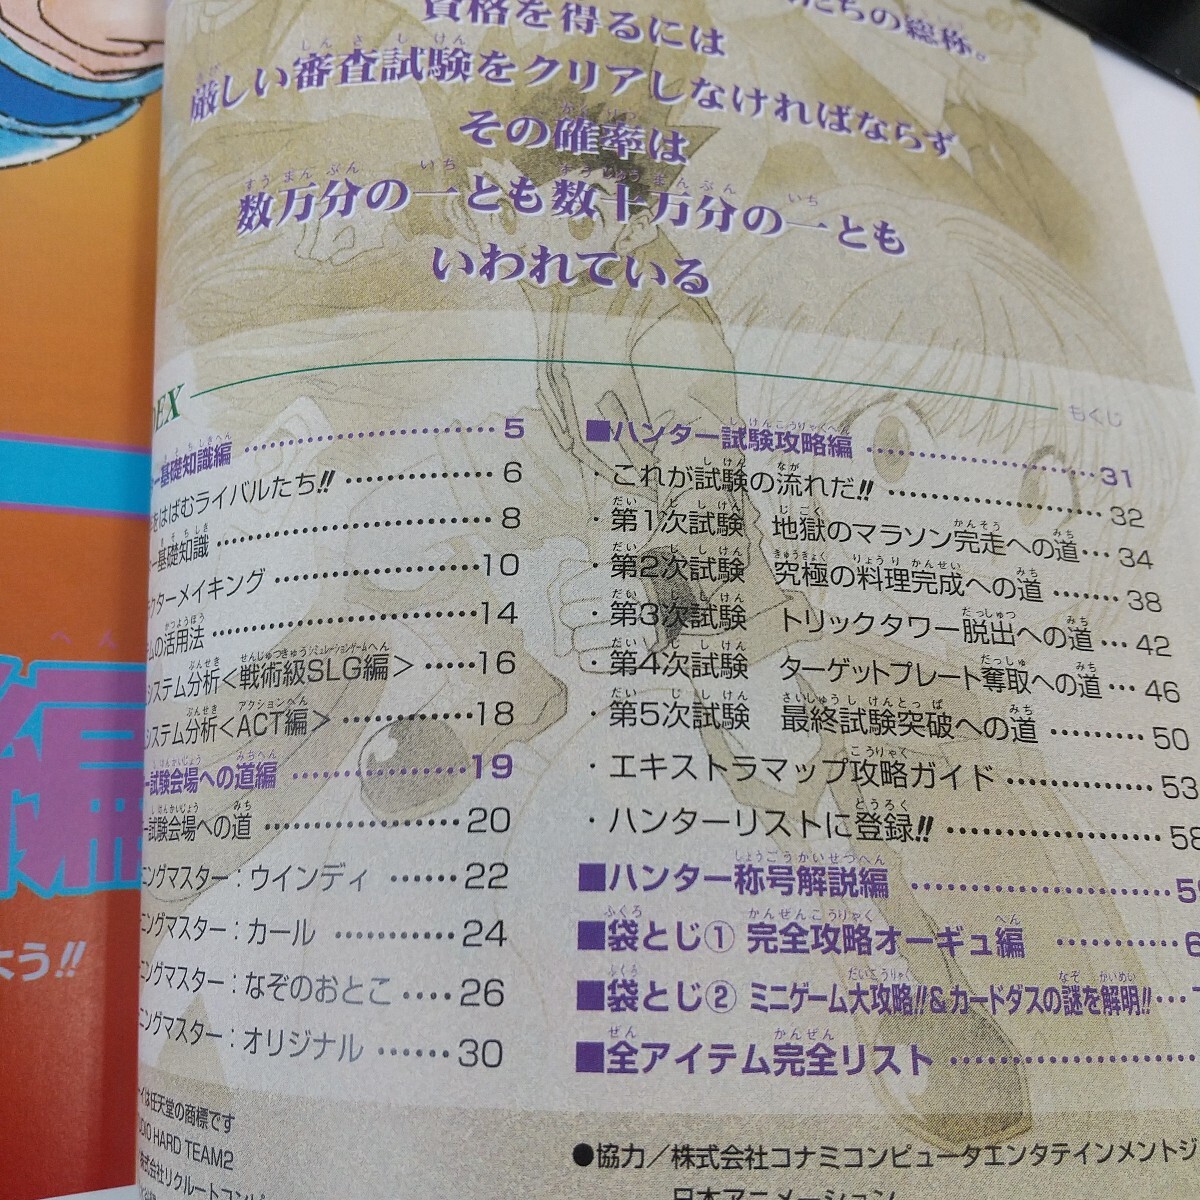 たちの総称。
資格を得るには
厳しい審査試験をクリアしなければならず
その確率は
数万分の一とも数十万分の一とも
いわれている
DEX
もくじ
ー基礎知識編 5
をはばむライバルたち!! 6
ー基礎知識 8
クターメイキング 10
ムの活用法 14
システム分析<戦術級SLG編> 16
システム分析<ACT編> 18
ー試験会場への道編 19
ー試験会場への道 20
ニングマスター:ウインディ 22
ニングマスター:カール 24
ニングマスター:なぞのおとこ 26
ニングマスター:オリジナル 30
■ハンター試験攻略編 31
・これが試験の流れだ!! 32
・第1次試験 地獄のマラソン完走への道 34
・第2次試験 究極の料理完成への道 38
・第3次試験 トリックタワー脱出への道 42
・第4次試験 ターゲットプレート奪取への道 46
・第5次試験 最終試験突破への道 50
・エキストラマップ攻略ガイド 53
・ハンターリストに登録!! 58
■ハンター称号解説編 5
■袋とじ① 完全攻略オーギュ編 6
■袋とじ② ミニゲーム大攻略!!&カードダスの謎を解明!!
■全アイテム完全リスト
イは任天堂の商標です
DIO HARD TEAM2
株式会社リクルートコンピ
●協力/株式会社コナミコンピュータエンタテインメントジ
日本アニメーション
編
へん
う!!